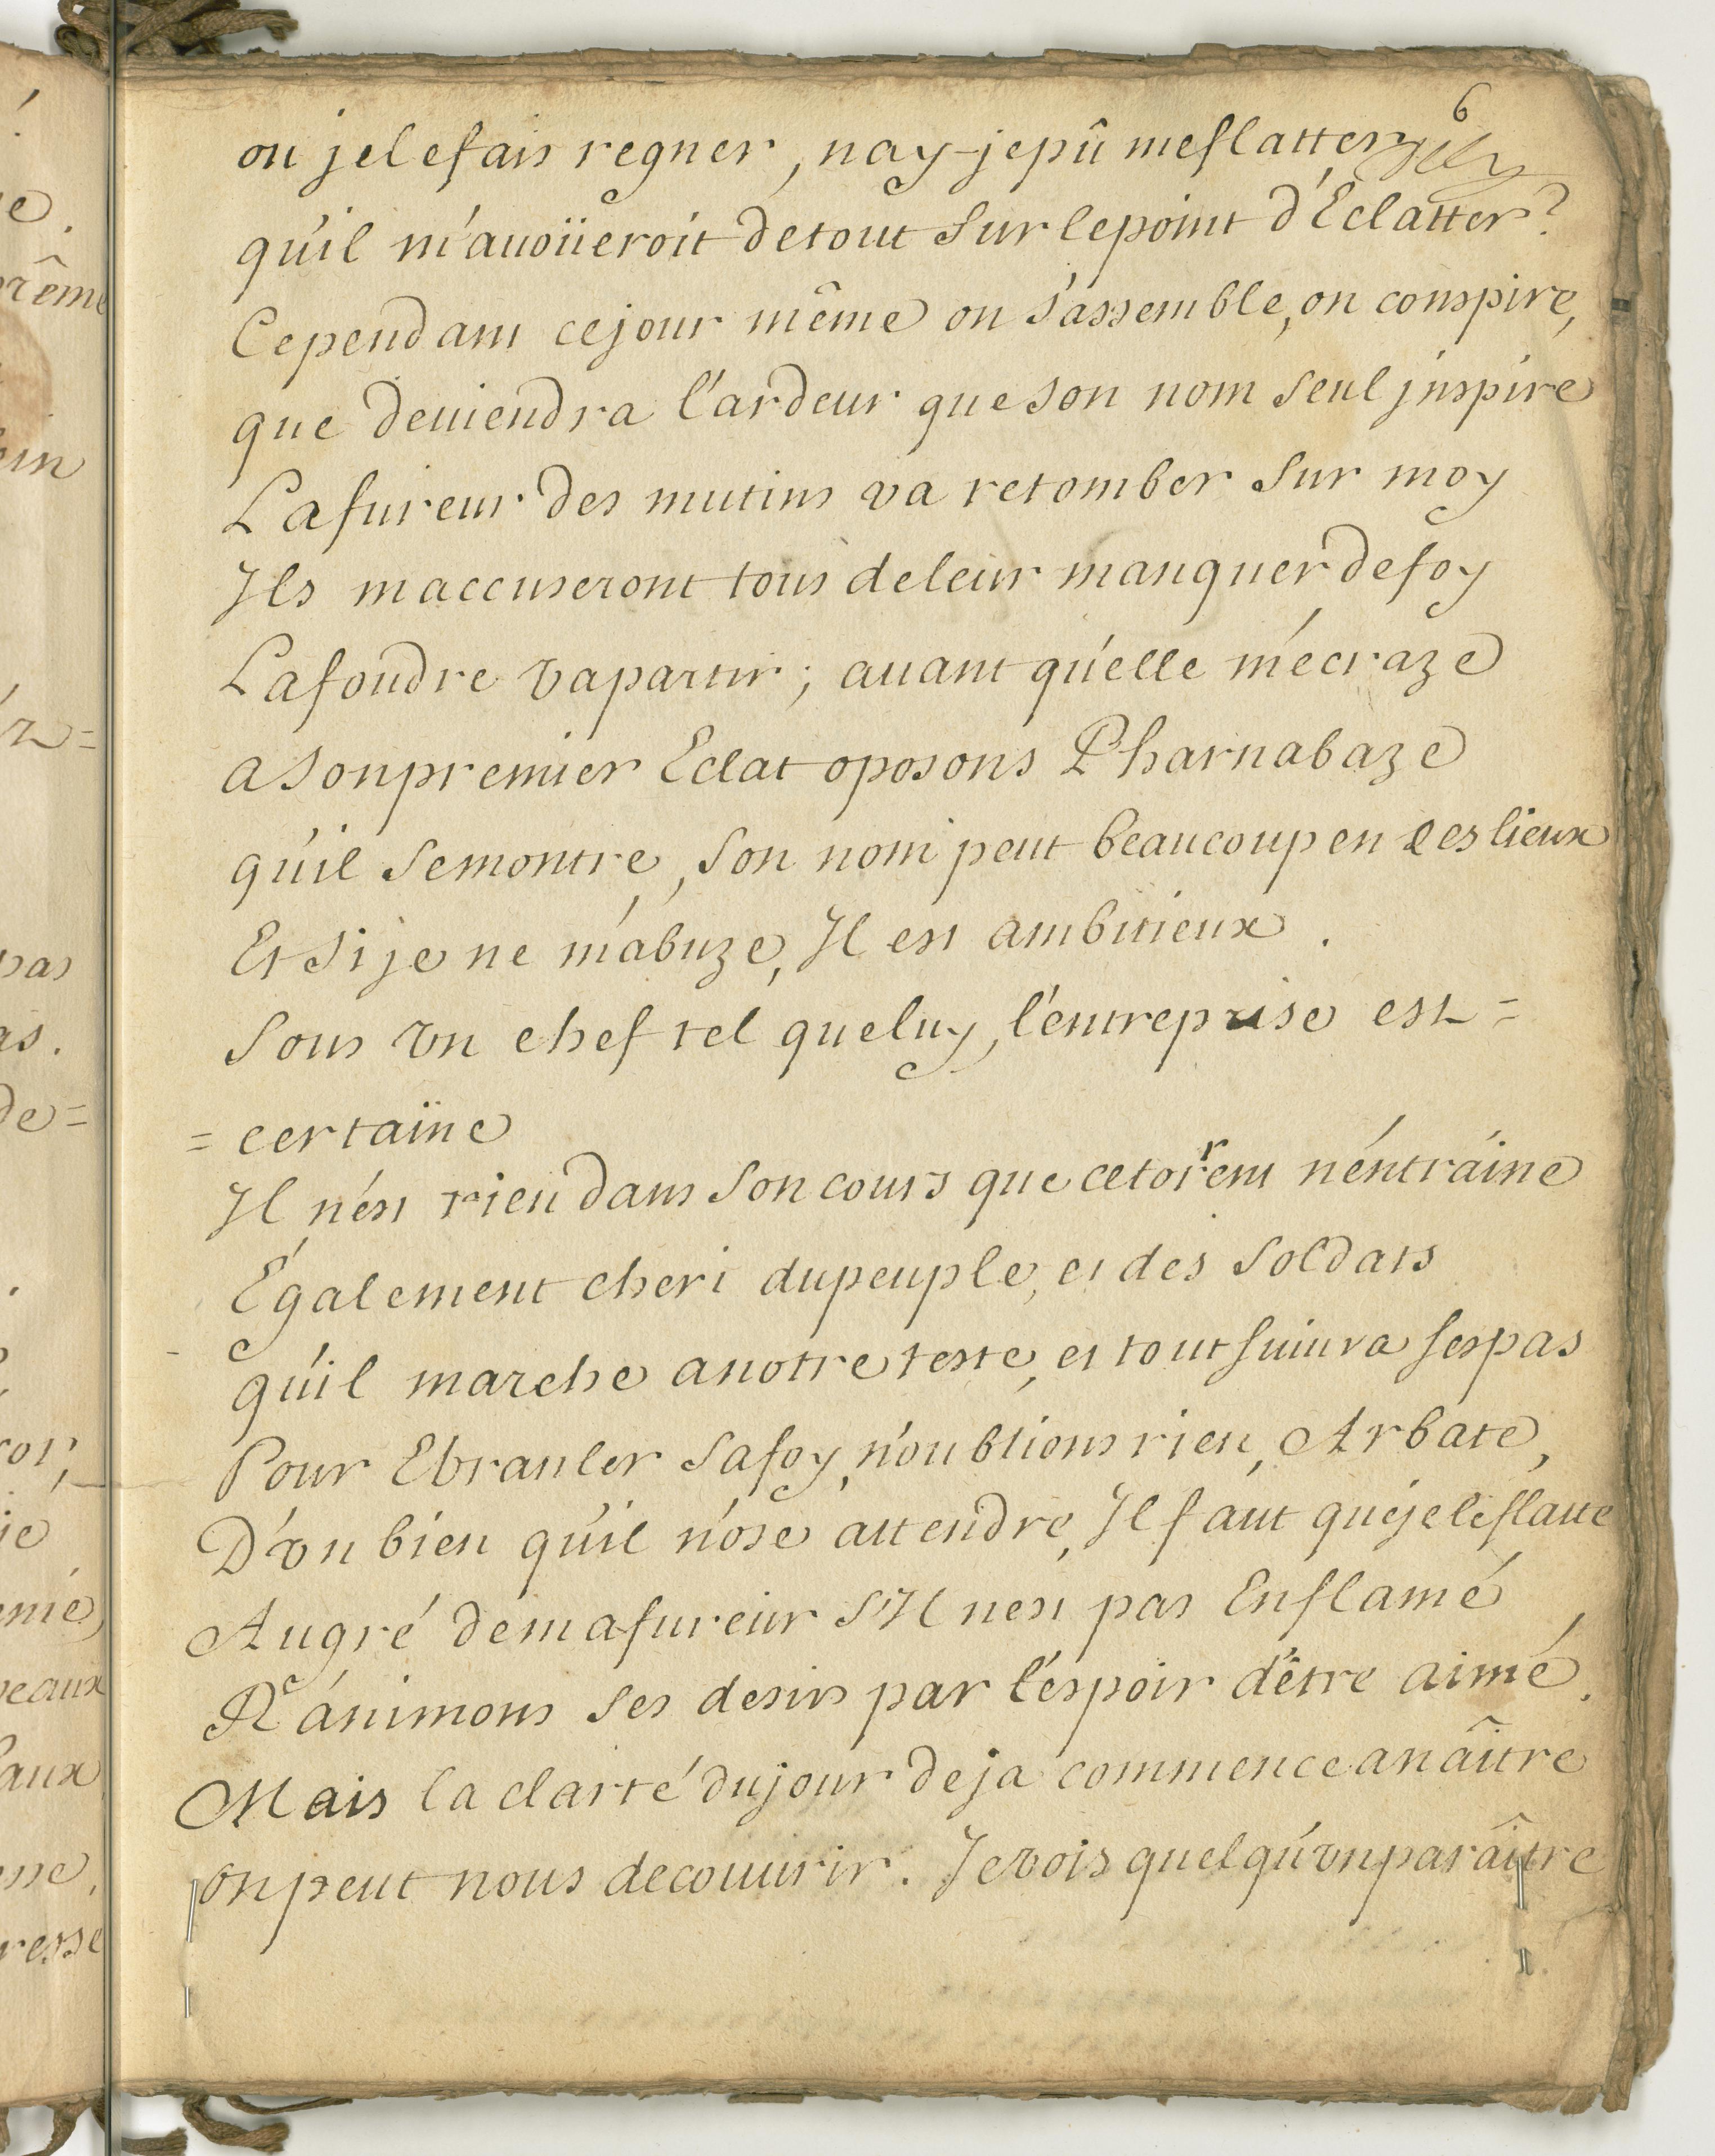 6
ou je le fais regner, nay-je pû me flatter
qu'il m'auoüeroit de tout sur le point d'Eclatter?
Cependant ce jour même on s'assemble, on conspire,
que deuiendra l'ardeur que son nom seul jnspire
La fureur des mutins va retomber sur moy
Ils maccuseront tous de leur manquer de foy
La foudre va partir; auant qu'elle m'ecraze
a son premier Eclat oposons Pharnabaze
qu'il se montre, son nom peut beaucoup en ces lieux
Et si je ne m'abuze, Il est ambitieux.
Sous vn chef tel que luy, l'entreprise est =
= certaine
Il n'est rien dans son cours que ce torrent n'entraine
Également cheri du peuple, et des soldats
qu'il marche a notre teste, et tout suiura ses pas
Pour Ebranler sa foy, n'oublions rien, Arbate,
D'vn bien qu'il n'ose attendre, Il faut que je le flatte
Au gré de ma fureur s'Il nest pas Enflamé,
Ranimons ses desirs par l'espoir d'être aimé.
Mais la clarté du jour deja commence a naître
on peut nous decouurir. Je vois quelqu'vn parâitre